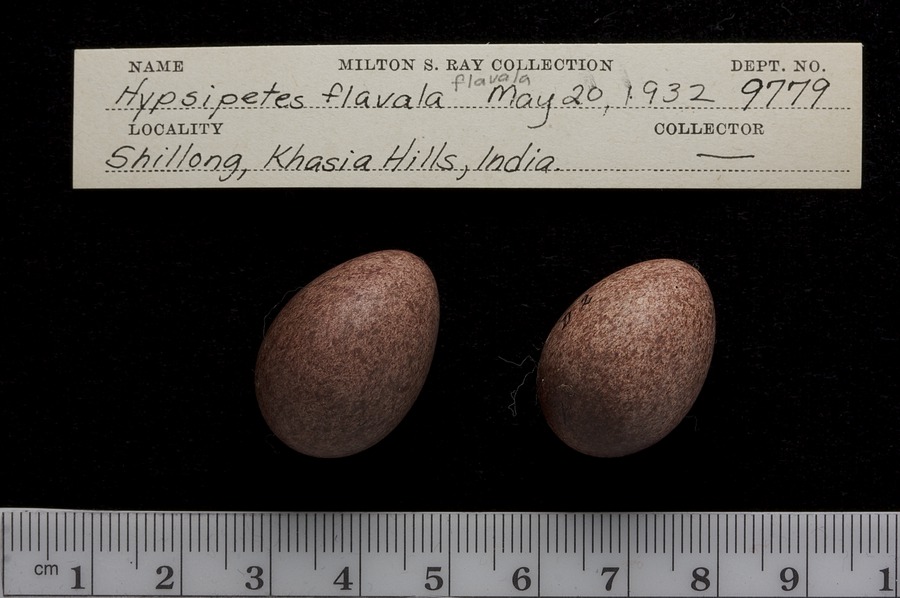 NAME MILTON S. RAY COLLECTION DEPT. NO.
flavala
Hypsipetes flavala May 20, 1932 9779
LOCALITY COLLECTOR
Shillong, Khasia Hills, India. —
cm 1 2 3 4 5 6 7 8 9 1